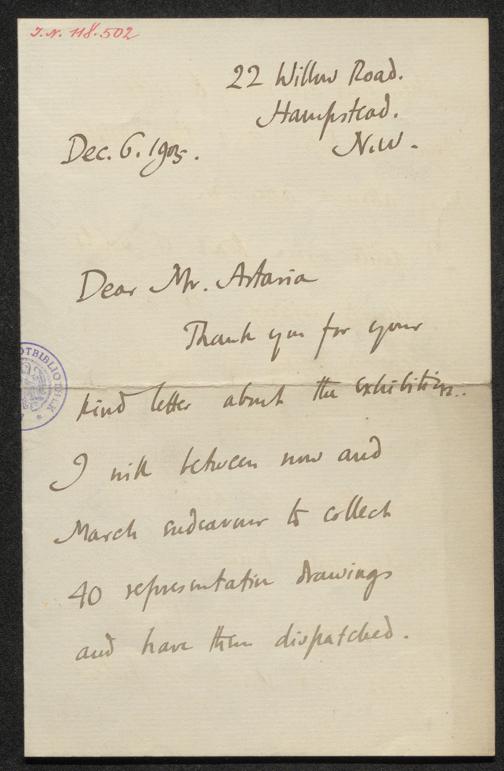 J.N. 118.502
22 Willow Road.
Hampstead.
N.W.
Dec. 6. 1905.
Dear Mr. Artaria
Thank you for your
kind letter about the exhibition.
I will between now and
March endeavour to collect
40 representative drawings
and have them dispatched.